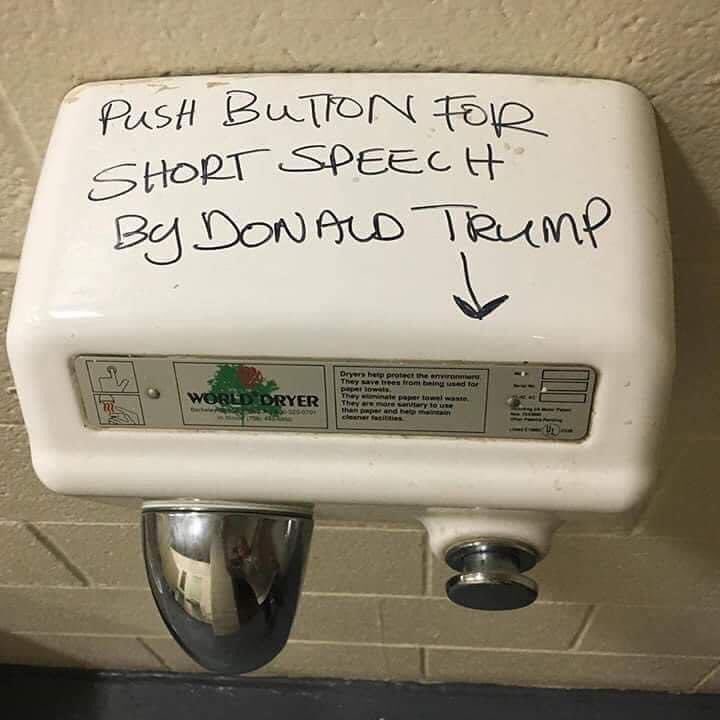 PUSH BUTTON FOR
SHORT SPEECH
By DONALD TRUMP
WORLD DRYER
Dryers help protect the environment.
They save trees from being used for
paper towels.
They eliminate paper towel waste.
They are more sanitary to use
than paper and help maintain
cleaner facilities.
UL